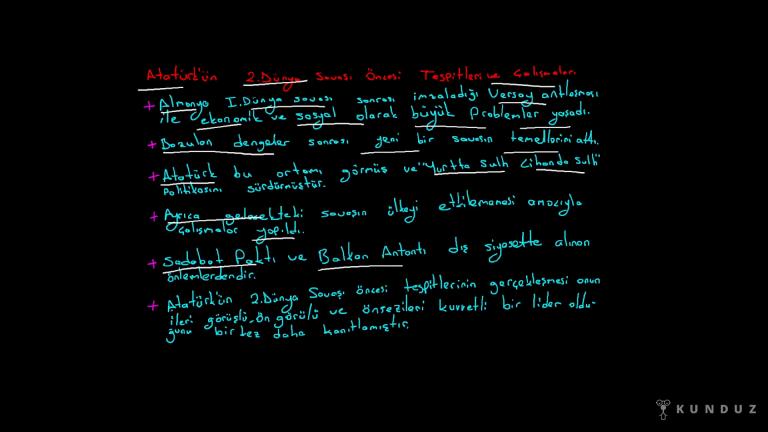 Atatürk'ün 2.Dünya Savaşı Öncesi Tespitleri ve Çalışmaları
+ Almanya I.Dünya savaşı sonrası imzaladığı Versay antlaşması
ile ekonomik ve sosyal olarak büyük Problemler yaşadı.
+ Bozulan dengeler sonrası yeni bir savaşın temellerini attı.
+ Atatürk bu ortamı görmüş ve "Yurtta Sulh Cihanda Sulh"
Politikasını sürdürmüştür.
+ Ayrıca gelecekteki savaşın ülkeyi etkilememesi amacıyla
Çalışmalar yapıldı.
+ Sadabat Paktı ve Balkan Antantı dış siyasette alınan
önlemlerdendir.
+ Atatürk'ün 2.Dünya Savaşı öncesi tespitlerinin gerçekleşmesi onun
ileri görüşlü, ön görülü ve önsezileri kuvvetli bir lider oldu-
ğunu bir kez daha kanıtlamıştır.
KUNDUZ